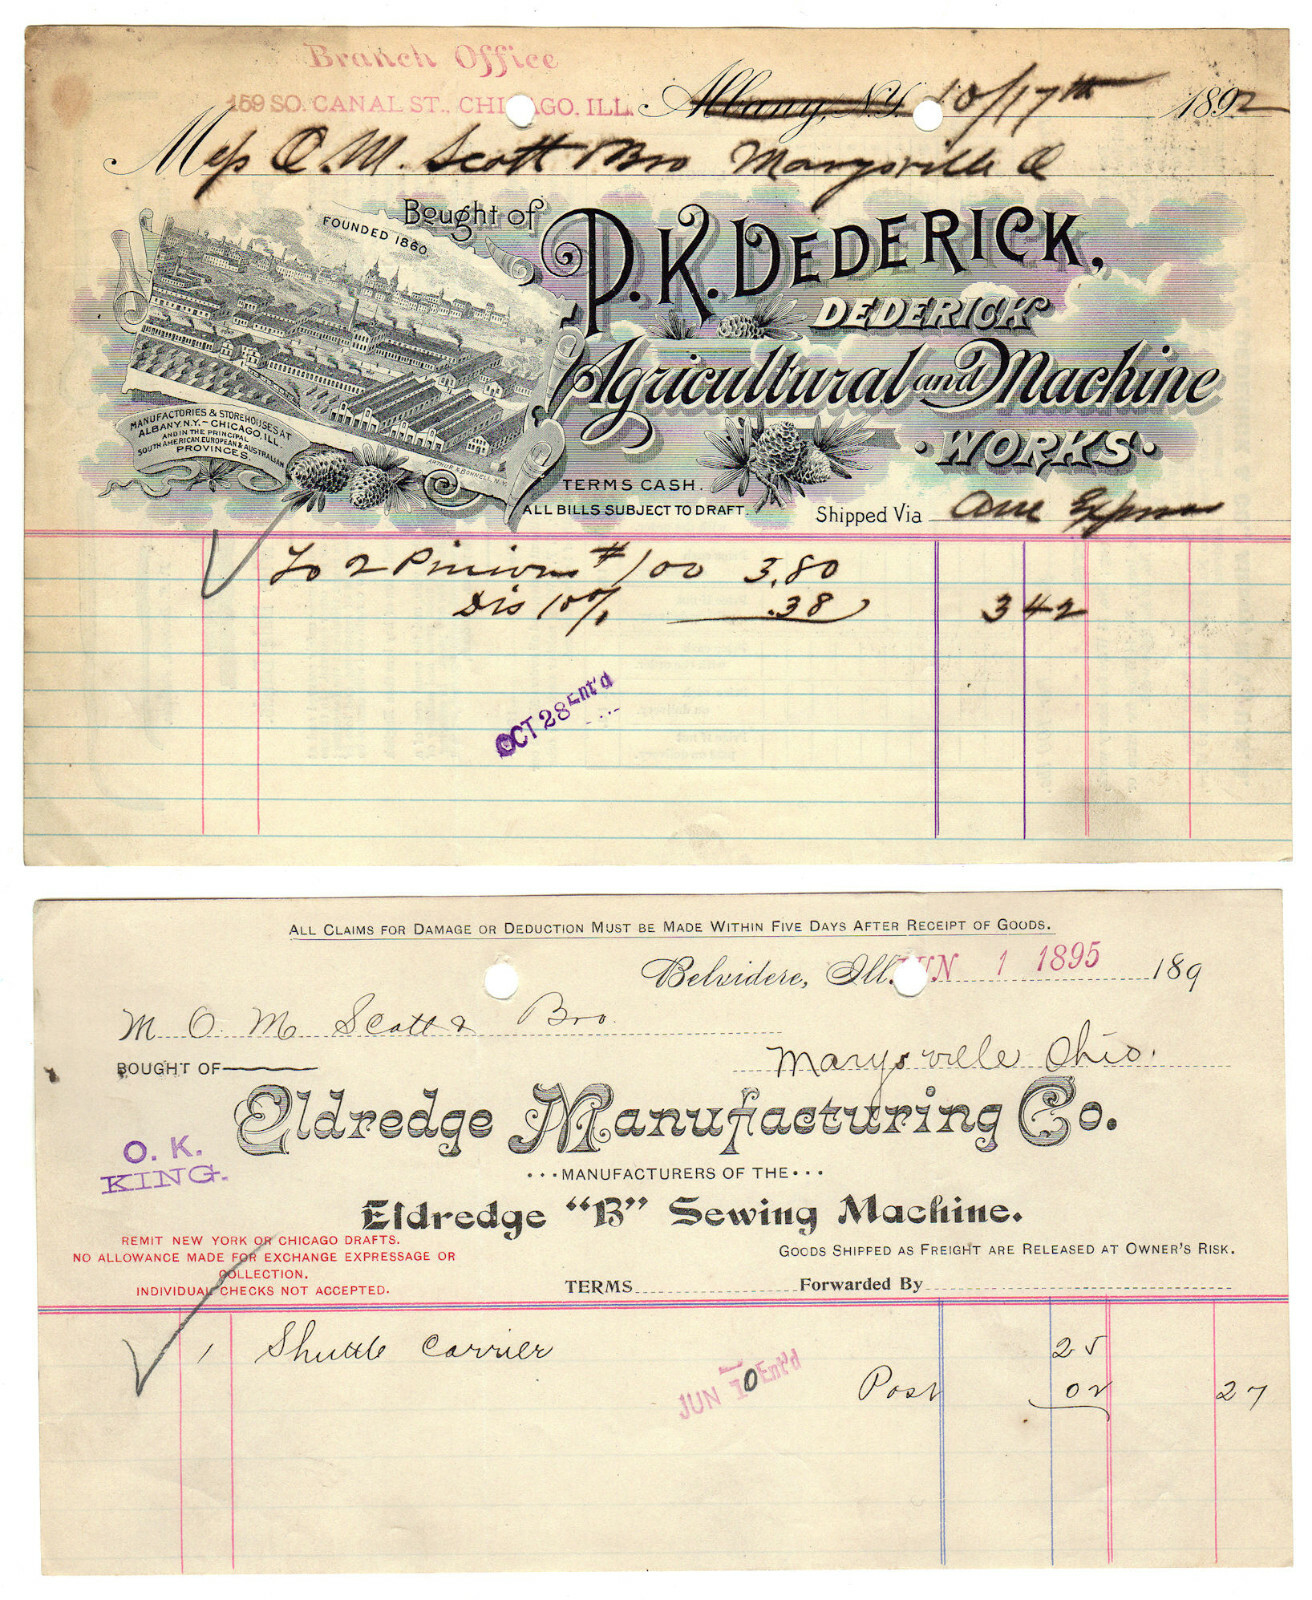 Branch Office
159 SO. CANAL ST., CHICAGO, ILL.
Albany, N.Y. 10/17th 1892
Mess O. M. Scott & Bro Marysville O
Bought of
P. K. DEDERICK,
DEDERICK
Agricultural and Machine
· WORKS ·
FOUNDED 1860
MANUFACTORIES & STOREHOUSES AT
ALBANY, N.Y. – CHICAGO, ILL.
AND IN THE PRINCIPAL
SOUTH AMERICAN, EUROPEAN & AUSTRALIAN
PROVINCES.
TERMS CASH.
ALL BILLS SUBJECT TO DRAFT.
Shipped Via Am Express
To 2 Pinions #100 3.80
Dis 10% .38 3 42
OCT 28 Ent'd
ALL CLAIMS FOR DAMAGE OR DEDUCTION MUST BE MADE WITHIN FIVE DAYS AFTER RECEIPT OF GOODS.
Belvidere, Ill. JUN 1 1895 189
M O. M Scott & Bro.
Marysville Ohio.
BOUGHT OF
Eldredge Manufacturing Co.
···MANUFACTURERS OF THE···
Eldredge “B” Sewing Machine.
O. K.
KING.
REMIT NEW YORK OR CHICAGO DRAFTS.
NO ALLOWANCE MADE FOR EXCHANGE EXPRESSAGE OR
COLLECTION.
INDIVIDUAL CHECKS NOT ACCEPTED.
GOODS SHIPPED AS FREIGHT ARE RELEASED AT OWNER'S RISK.
TERMS Forwarded By
1 Shuttle Carrier 25
Post 02 27
JUN 10 Ent'd